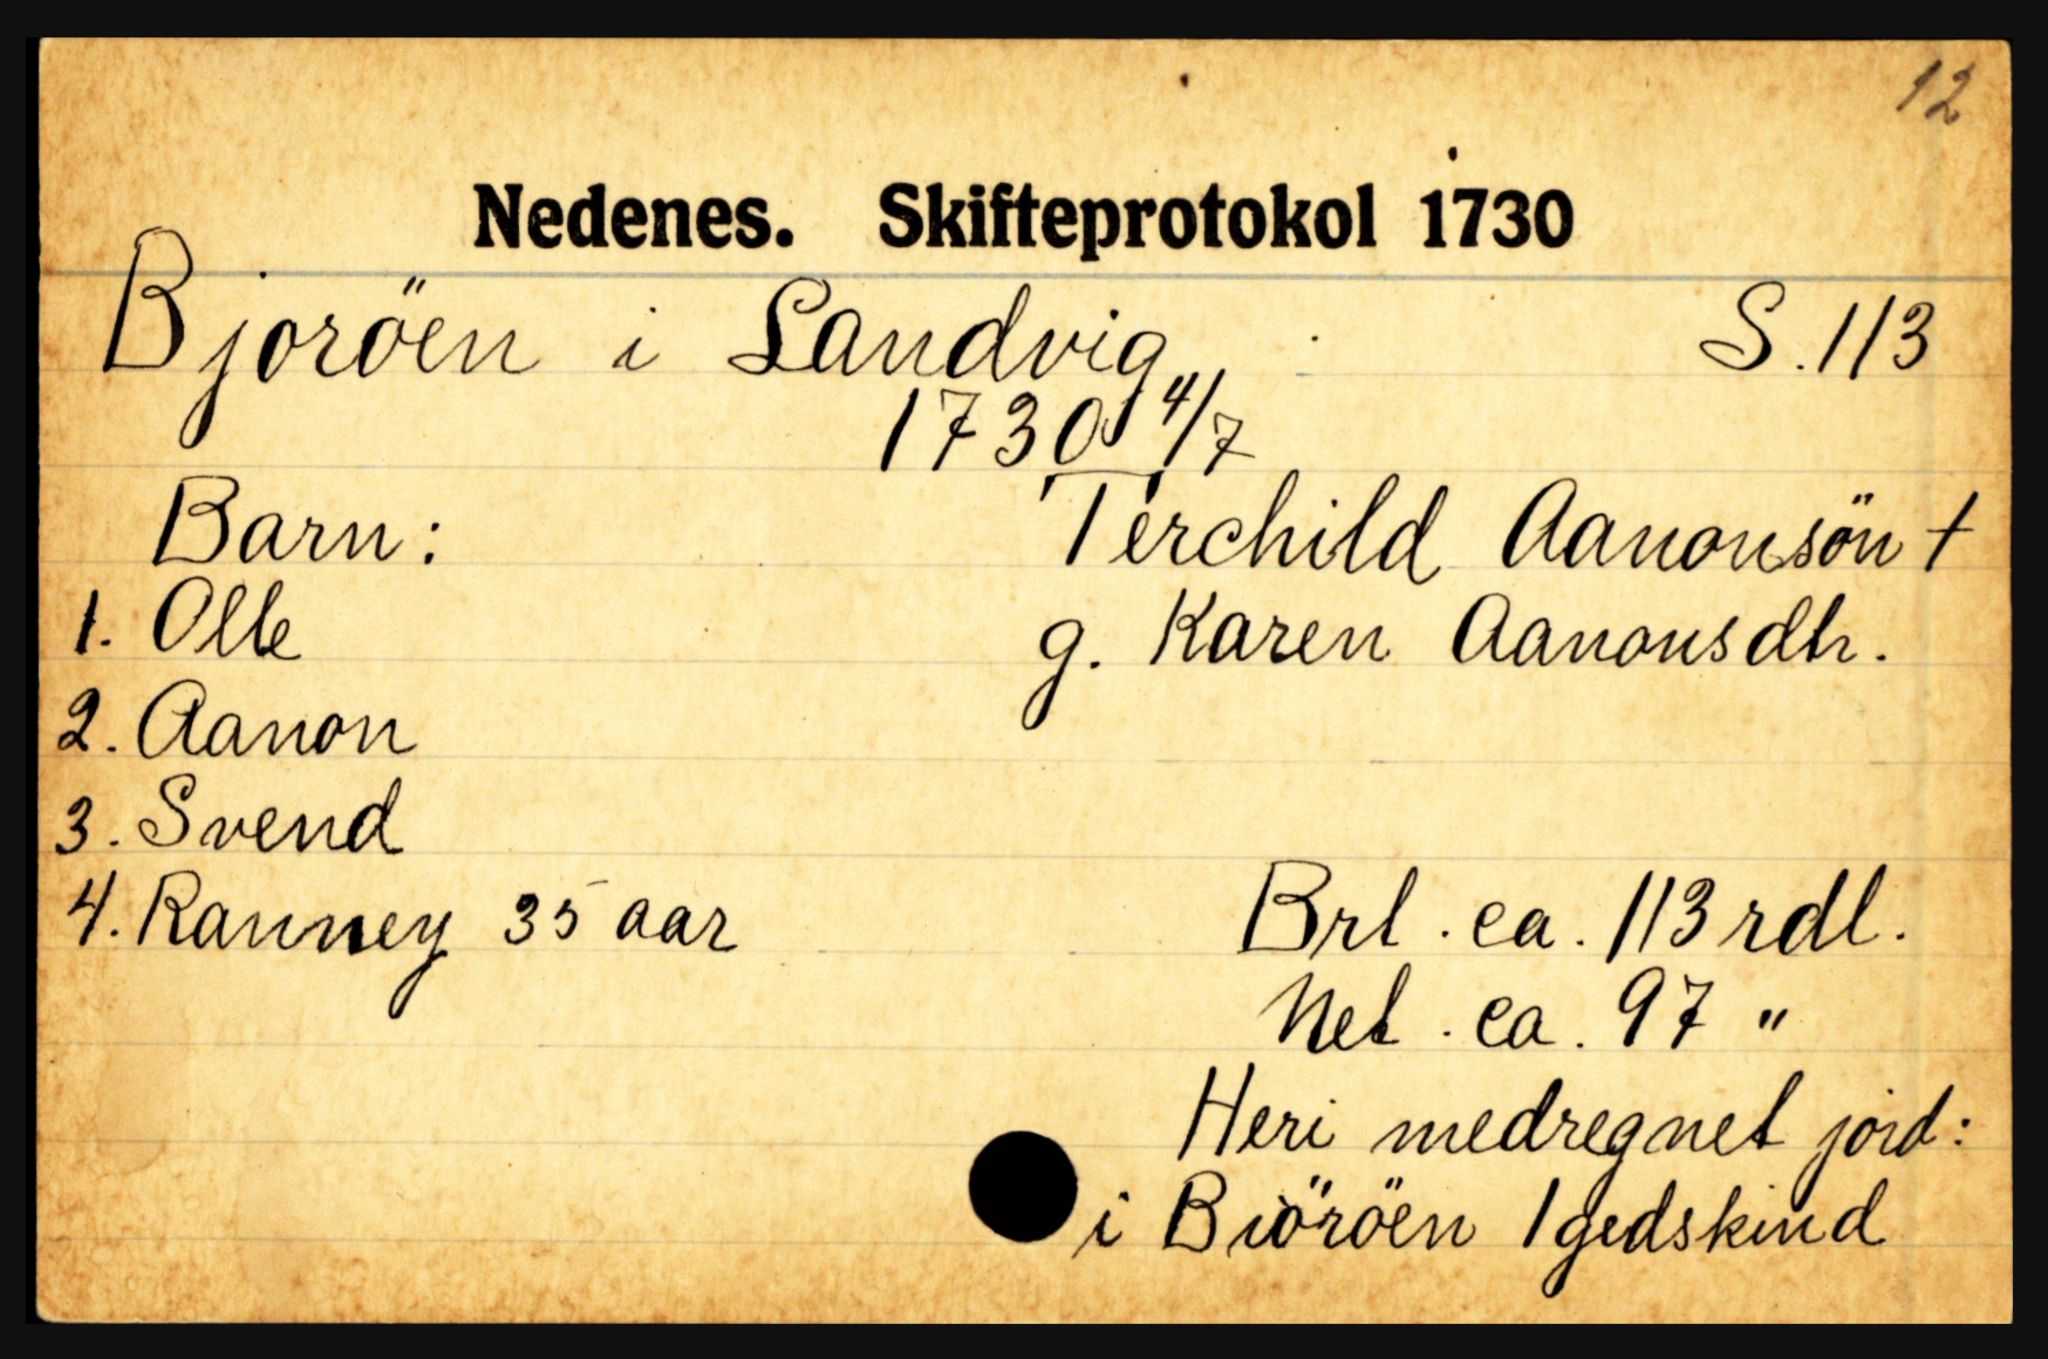 12
Nedenes. Skifteprotokol 1730
Bjoröen i Landvig S. 113
1730 4/7
Barn: Terchild Aanonsön †
1. Olle g. Karen Aanonsdtr.
2. Aanon
3. Svend
4. Ranney 35 aar Brt. ca. 113 rdl.
Net. ca. 97 "
Heri medregnet jord:
i Biöröen 1 gedskind